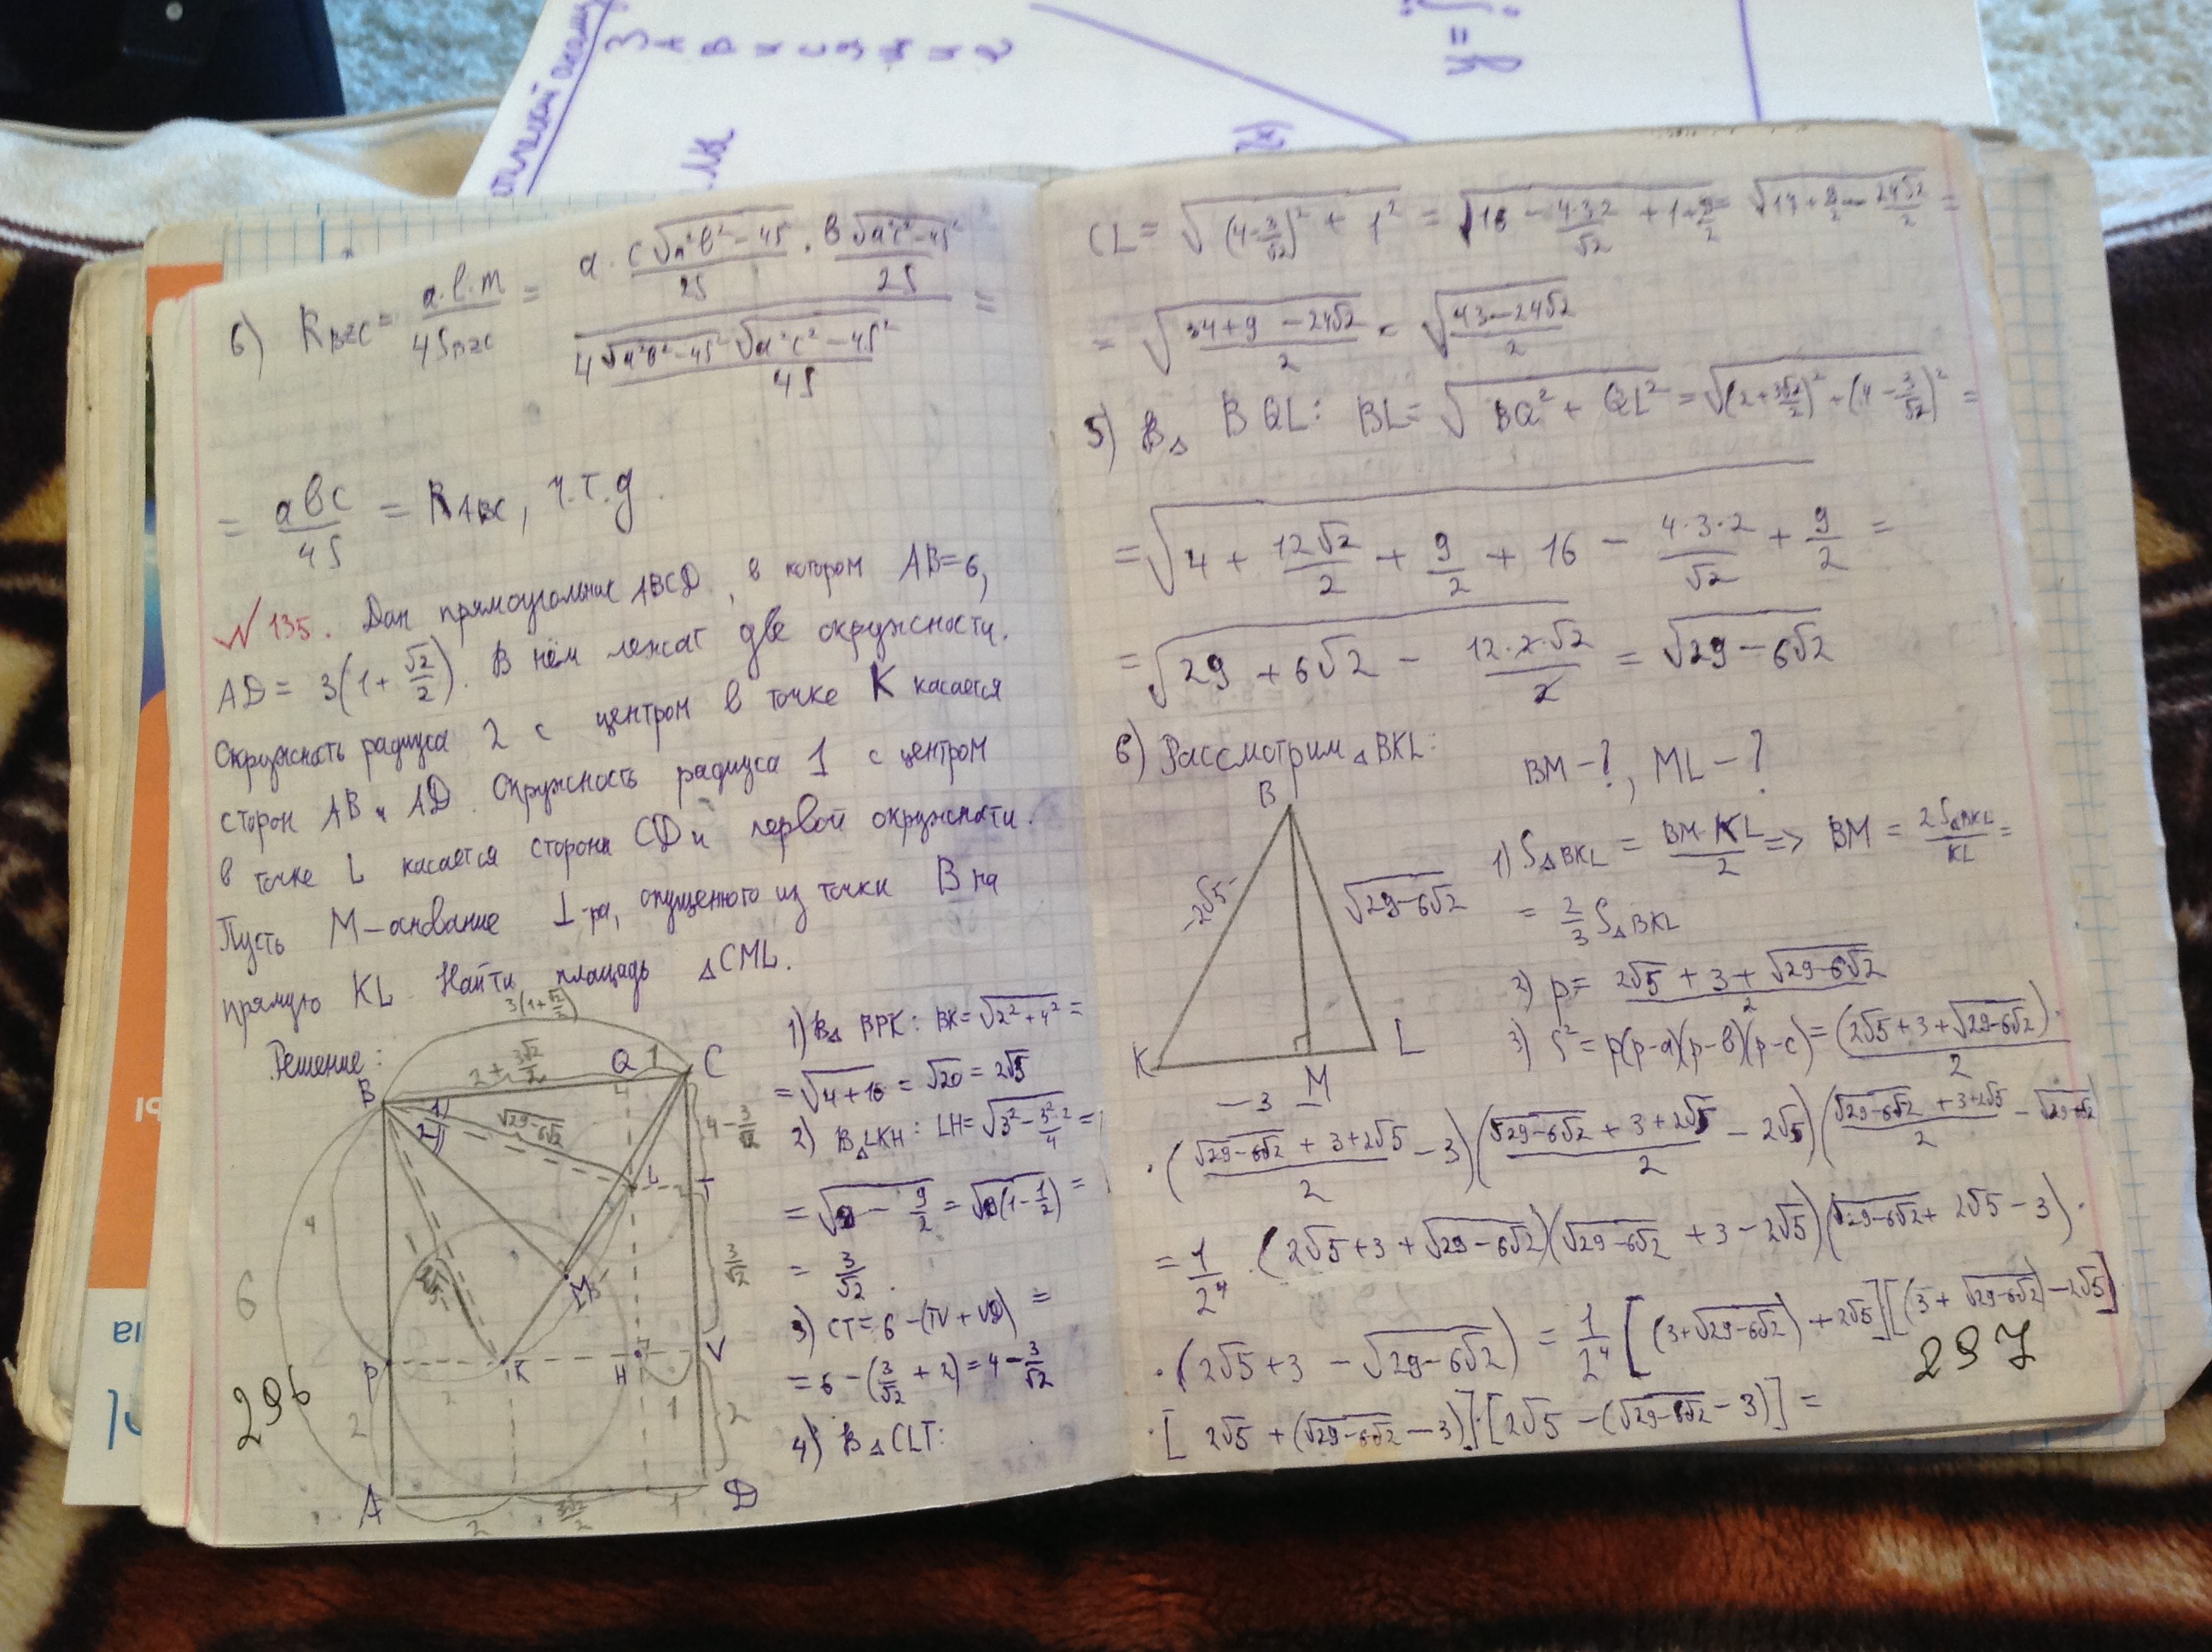 6) R_BZC = a·l·m / 4S_BZC = (a · c√(a²b²-4S²)/2S · b√(a²c²-4S²)/2S) / (4√(a²b²-4S²)√(a²c²-4S²)/4S) =
= abc/4S = R_ABC, ч.т.д.
№135. Дан прямоугольник ABCD, в котором AB=6,
AD = 3(1+√2/2). В нём лежат две окружности.
Окружность радиуса 2 с центром в точке K касается
сторон AB и AD. Окружность радиуса 1 с центром
в точке L касается стороны CD и первой окружности.
Пусть M-основание ⊥-ра, опущенного из точки B на
прямую KL. Найти площадь △CML.
Решение:
3(1+√2/2)
B 2+3√2/2 Q 1 C
1) 2)
√(29-6√2)
4-3/√2
L T
4
6
2√5
M
3/√2
P 2 K H V
2 1 2
A 2 3√2/2 1 D
1) В△ BPK: BK=√(2²+4²) =
=√(4+16) = √20 = 2√5
2) В△LKH: LH=√(3²-3²·2/4) =
= √(9 - 9/2) = √(9(1-1/2)) =
= 3/√2.
3) CT=6-(TV+VD) =
=6-(3/√2+2)=4-3/√2
4) В△CLT:
296
CL = √((4-3/√2)²+1²) = √(16 - 4·3·2/√2 + 1+9/2) = √(17+9/2-24√2/2) =
= √((34+9-24√2)/2) = √((43-24√2)/2)
5) В△ BQL: BL=√(BQ²+QL²) = √((2+3√2/2)²+(4-3/√2)²) =
= √(4 + 12√2/2 + 9/2 + 16 - 4·3·2/√2 + 9/2) =
= √(29+6√2 - 12·2·√2/2) = √(29-6√2)
6) Рассмотрим △BKL:
BM-?, ML-?
B
2√5
√(29-6√2)
K L
-3- M
1) S△BKL = BM·KL/2 => BM = 2S△BKL/KL =
= 2/3 S△BKL
2) p= (2√5+3+√(29-6√2))/2
3) S²=p(p-a)(p-b)(p-c)= (2√5+3+√(29-6√2))/2 ·
·((√(29-6√2)+3+2√5)/2 - 3)((√(29-6√2)+3+2√5)/2 - 2√5)((√(29-6√2)+3+2√5)/2 - √(29-6√2))
= 1/2⁴ · (2√5+3+√(29-6√2))(√(29-6√2)+3-2√5)(√(29-6√2)+2√5-3)·
·(2√5+3-√(29-6√2)) = 1/2⁴ [(3+√(29-6√2))+2√5][(3+√(29-6√2))-2√5]
·[2√5+(√(29-6√2)-3)]·[2√5-(√(29-6√2)-3)] =
297